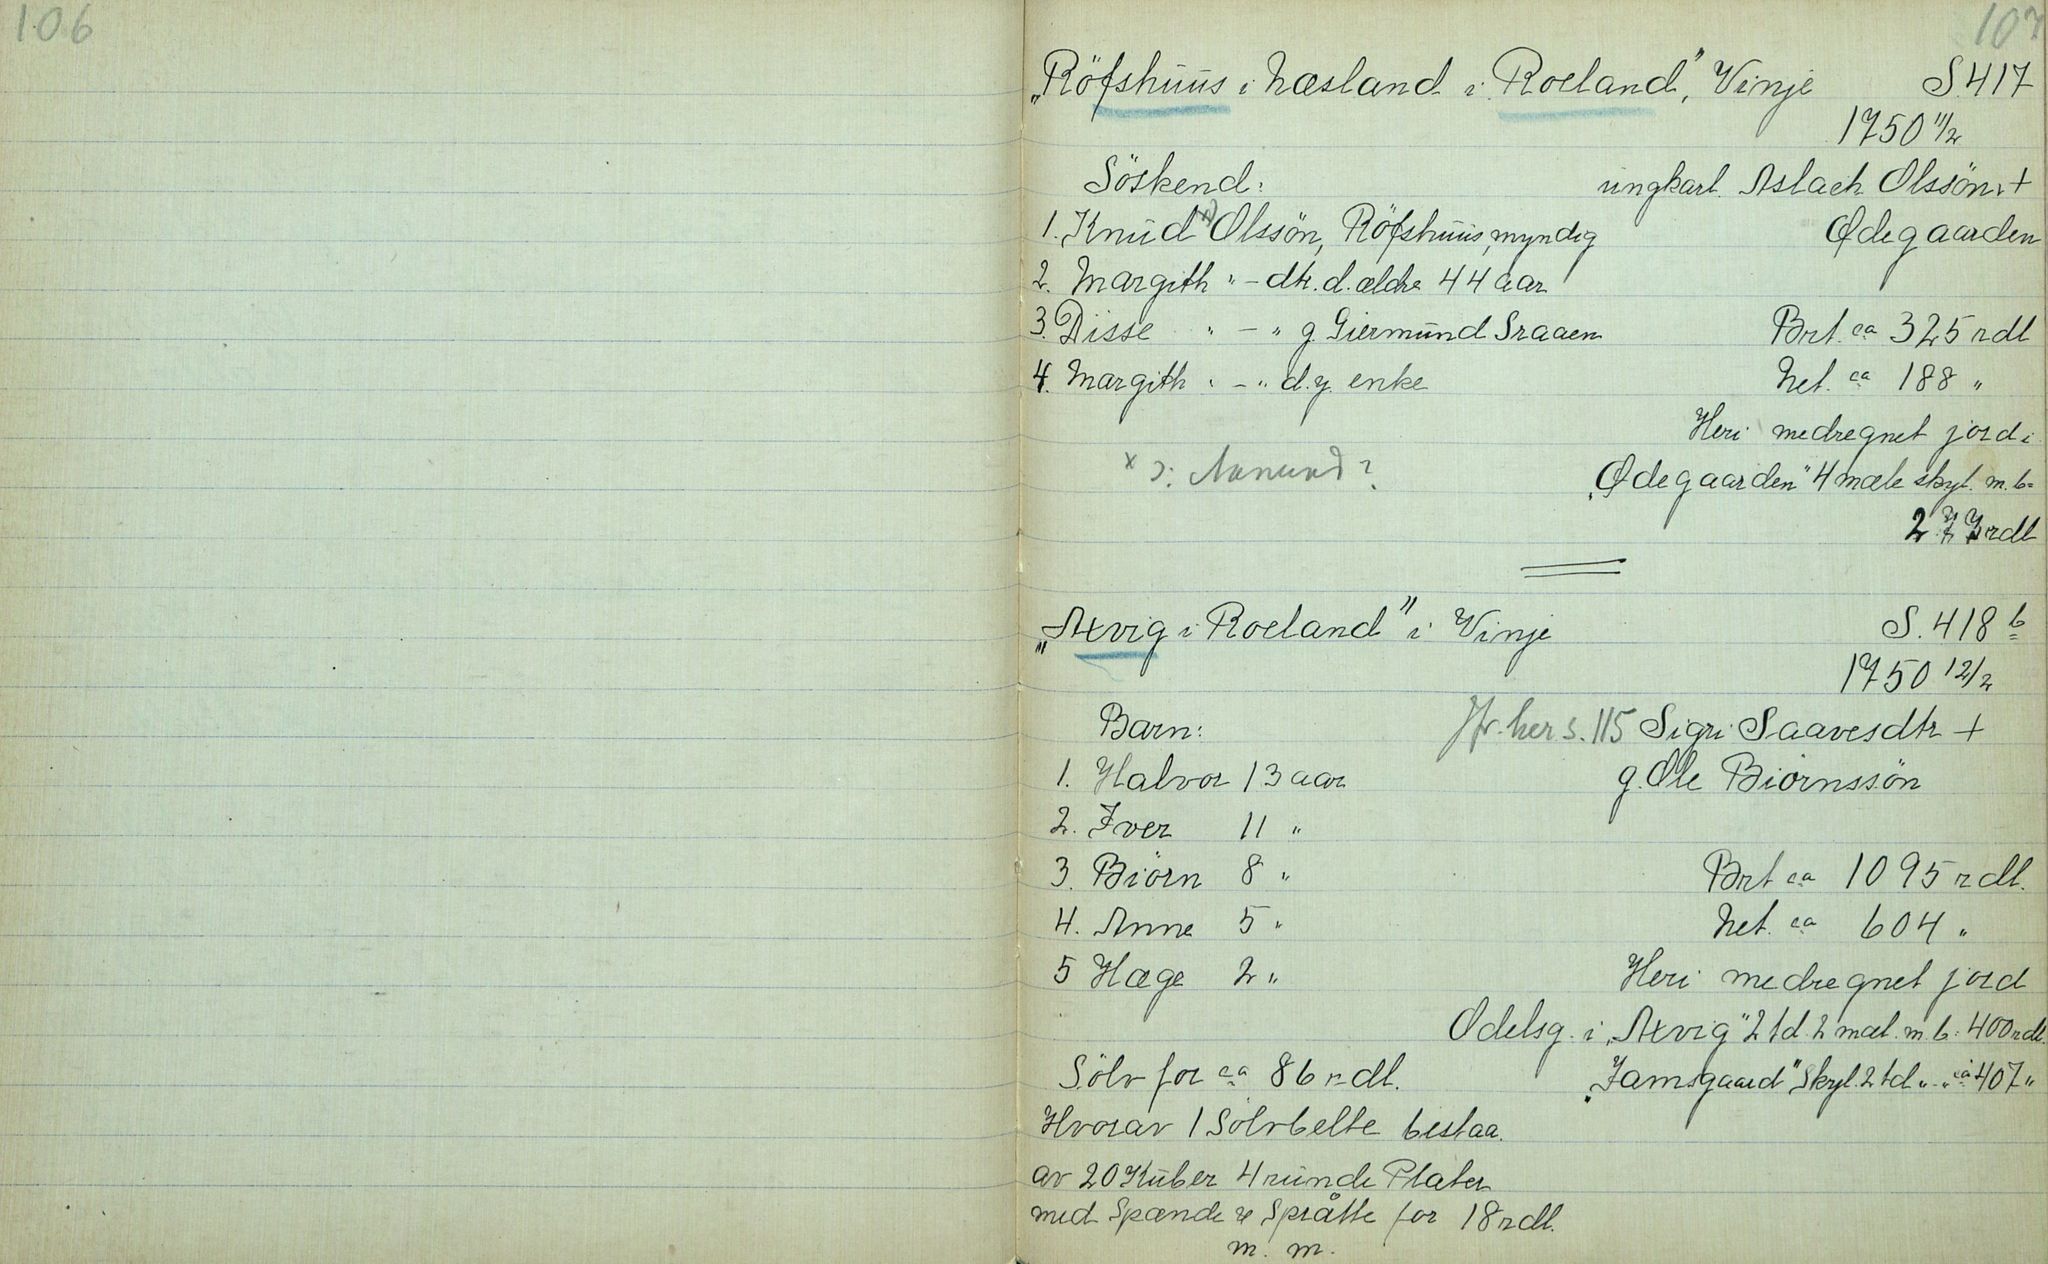 106
107
„Röfshuus i Næsland i Roeland", Vinje S. 417
1750 11/2
Söskend: ungkarl. Aslach Olssön +
1. Knud x) Olssön, Röfshuus, myndig Ødegaarden
2. Margith " - dtr. d. ældre 44 aar
3. Disse " - " g. Giermund Sraaen Brt. ca 325 rdl
4. Margith " - " d.y. enke Net. ca 188 "
Heri medregnet jord i
x ɔ: Anund? „Ødegaarden" 4 mæle skyl. m. b=
rdl
„Axvig i Roeland" i Vinje S. 418 b
1750 12/2
Barn: Jfr. her s. 115 Sigri Saavesdtr +
1. Halvor 13 aar g. Ole Biörnssön
2. Iver 11 "
3. Biörn 8 " Brt ca 1095 rdl.
4. Anne 5 " Net. ca 604 "
5 Hæge 2 " Heri medregnet jord
Odelsg. i „Axvig" 2 td. 2 mæl. m. b. 400 rdl.
Sölv for ca 86 rdl. „Jamsgaard" Skyl. 2 td " - " ca 407 "
Hvorav 1 Sölvbelte bestaa.
av 20 Kuber 4 runde Plater
med Spænde & Språtte for 18 rdl.
m. m.